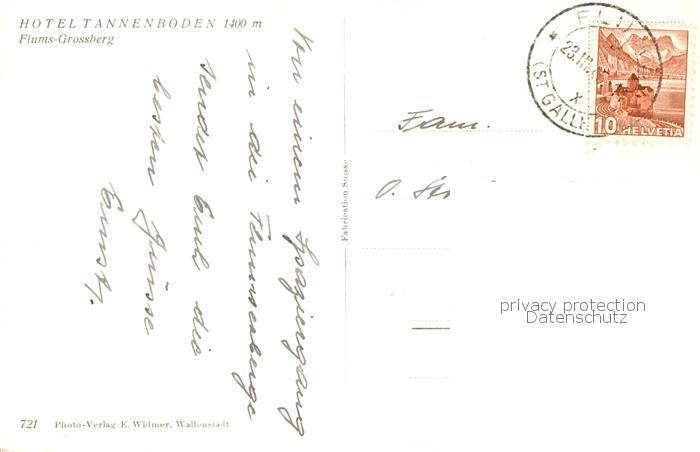 HOTEL TANNENBODEN 1400 m
Flums-Grossberg
Von einem Spaziergang
in die Flumserberge
sendet Euch die
besten Grüsse
Ernst.
721 Photo-Verlag E. Widmer, Wallenstadt
Fabrication Suisse
FLU
23.III
X
(ST GALLE
10 HELVETIA
Fam.
O. Str
privacy protection
Datenschutz